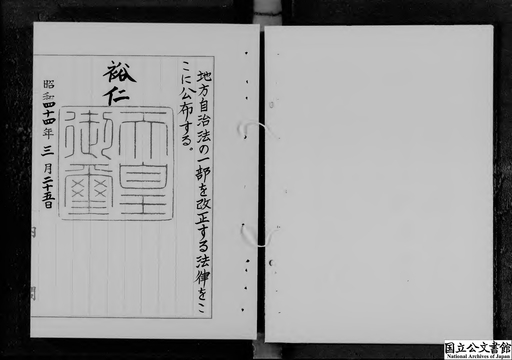 地方自治法の一部を改正する法律をこ
こに公布する。
裕仁
天皇
御璽
昭和四十四年三月二十五日
国立公文書館
National Archives of Japan